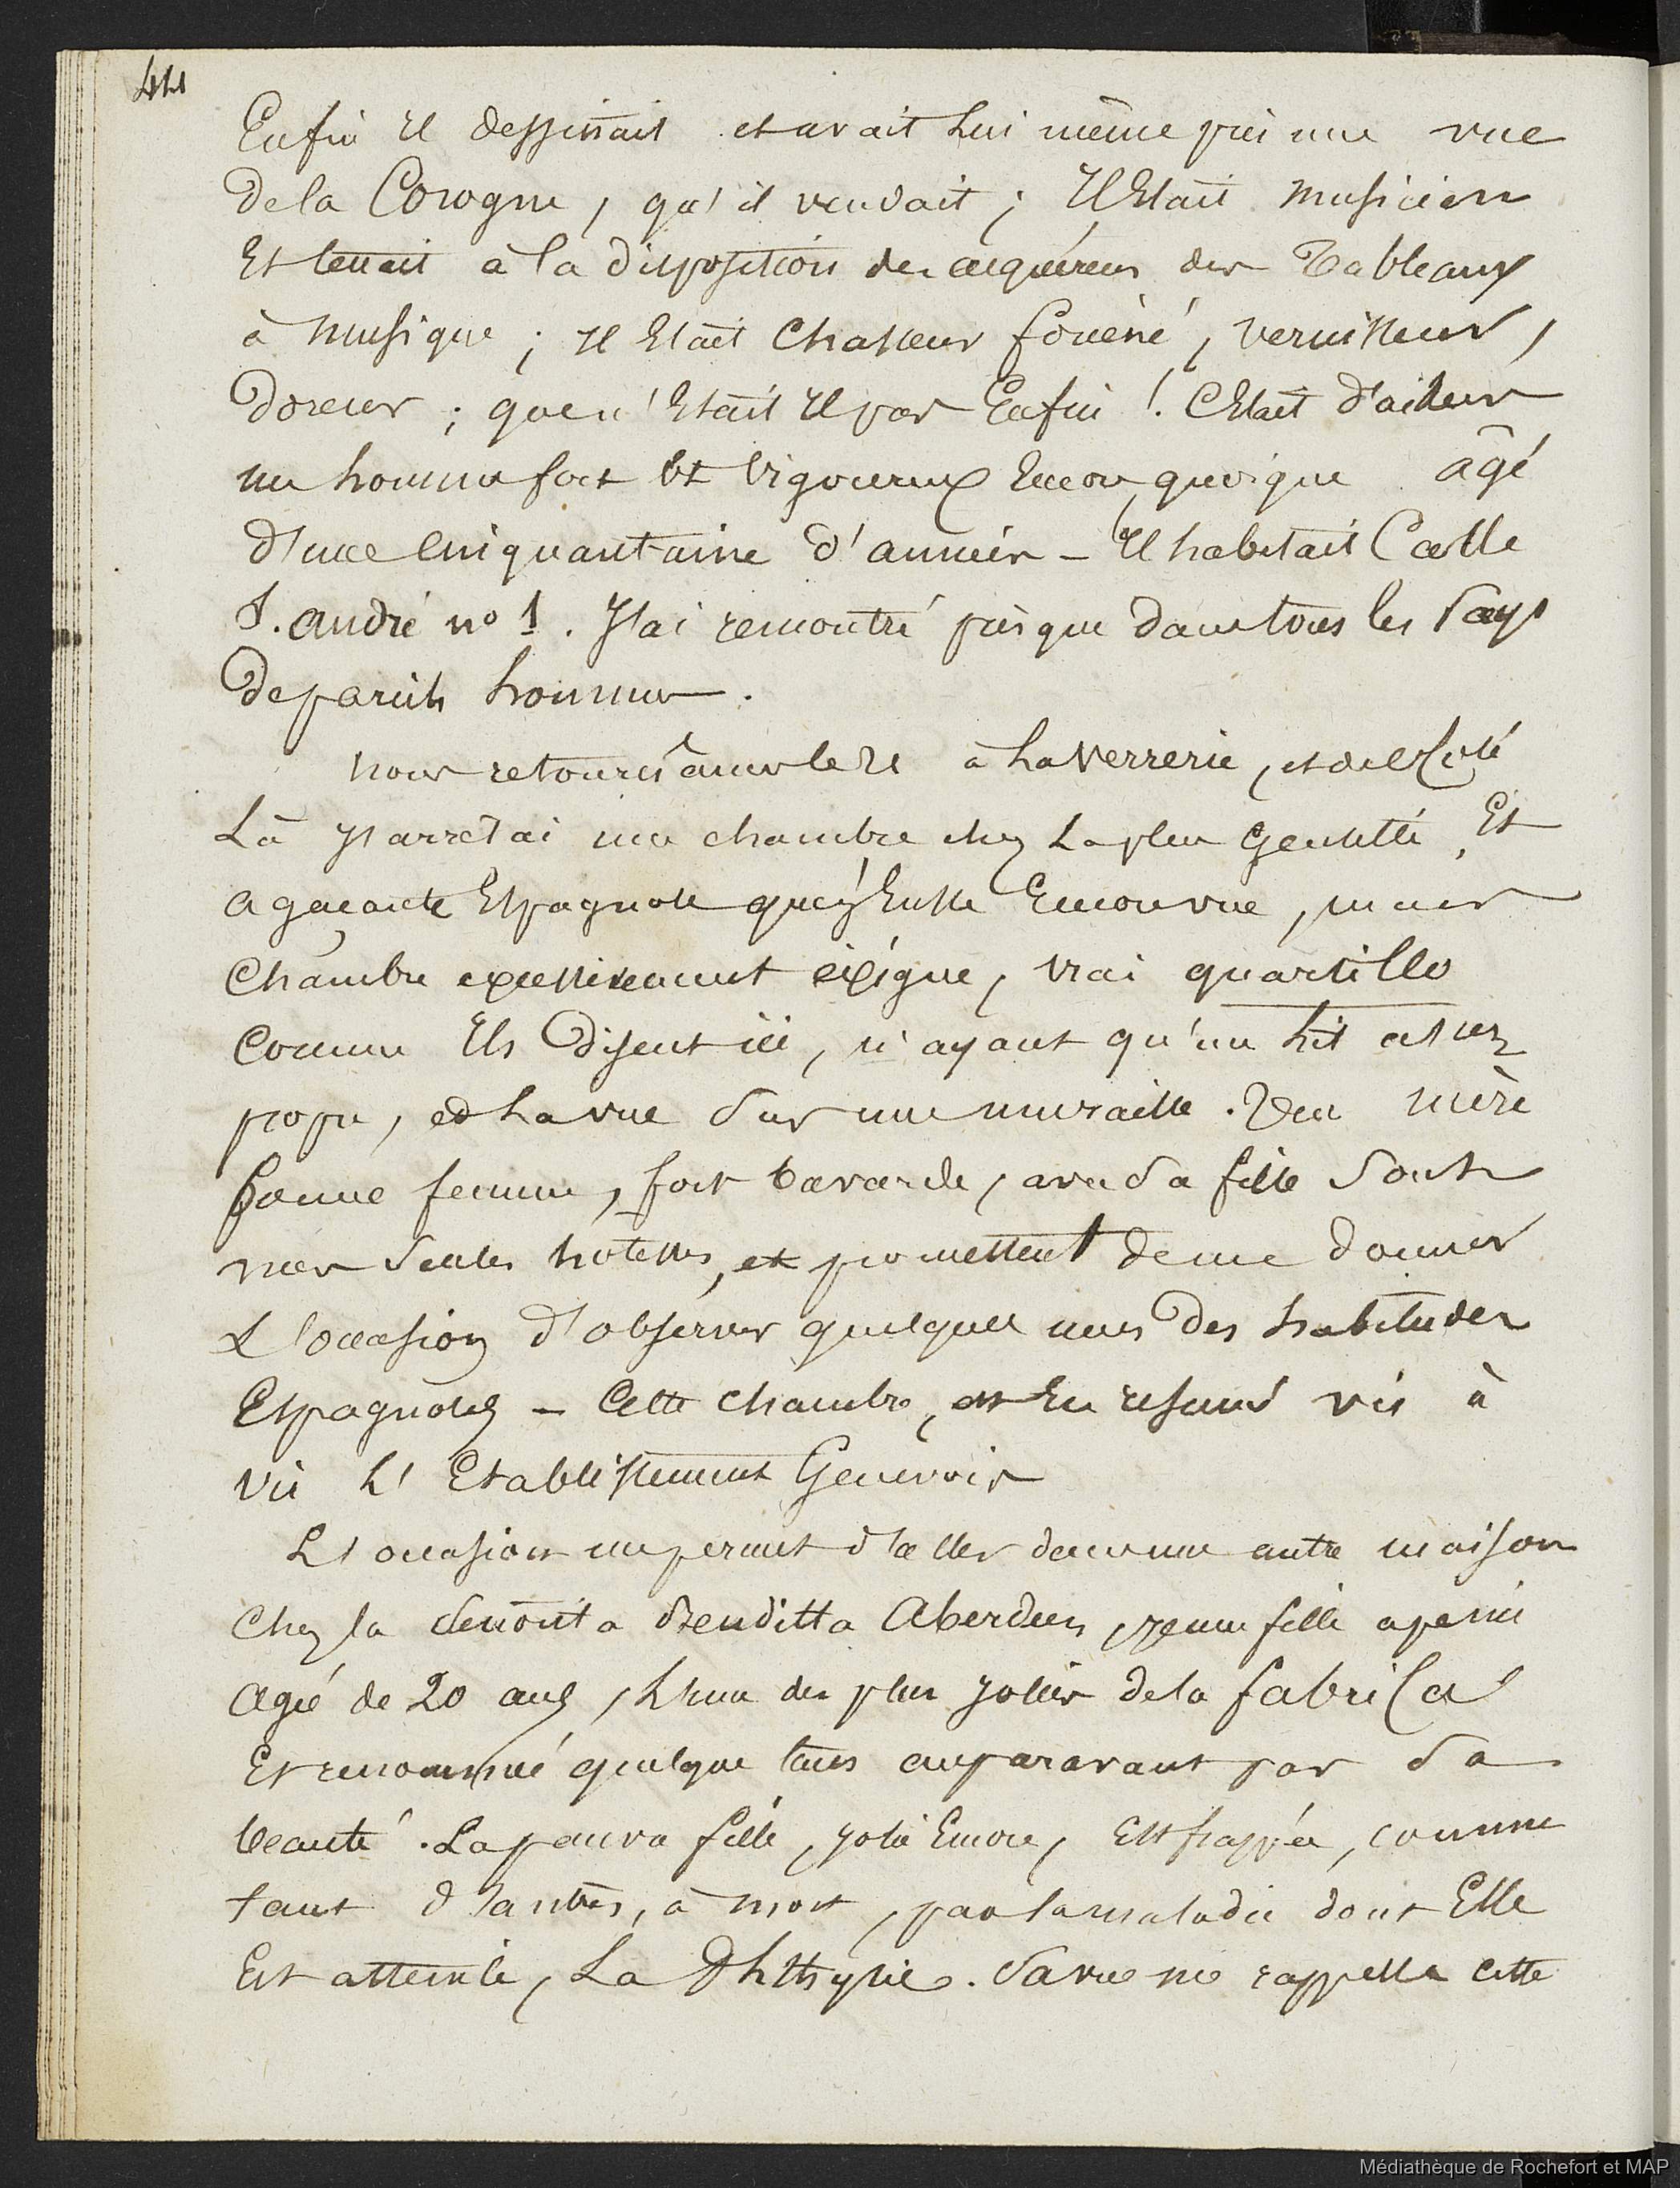 44
Enfin il dessinait et avait lui même pris une vue
de la Corogne, qu'il vendait ; Il Etait musicien
Et tenait à la disposition des acquéreurs des Tableaux
à musique ; il Etait Chasseur forcené, vernisseur,
doreur ; que n'Etait il pas Enfin ! C'Etait d'ailleurs
un homme fort Et vigoureux Encore, quoique âgé
d'une cinquantaine d'années – Il habitait Calle
S. André no 1. J'ai rencontré presque dans tous les Pays
de pareils hommes.
nous retournâmes le 21 à la Verrerie, et de ce côté
Là j'arrêtai une chambre chez la plus Gentille, Et
agaçante Espagnole que j'Eusse Encore vue, mais
Chambre excessivement exigue, vrai quartillo
Comme Ils disent ici, n'ayant qu'un lit assez
propre, et la vue sur une muraille. Une mère
bonne femme, fort bavarde, avec sa fille sont
mes seules hotesses, et promettent de me donner
L'occasion d'observer quelques unes des habitudes
Espagnoles – Cette chambre, est En résumé vis à
vis L'Etablissement Genevois
L'occasion me permet d'aller dans une autre maison
Chez la Senorita Benditta Aberdeen, jeune fille a peine
agée de 20 ans, L'une des plus jolies de la fabrica
Et renommée quelque tems auparavant par sa
beauté. La pauvre fille, jolie Encore, Est frappée, comme
tant d'autres, à mort, par la maladie dont Elle
Est atteinte, La Phthysie. Sa vue me rappelle cette
Médiathèque de Rochefort et MAP